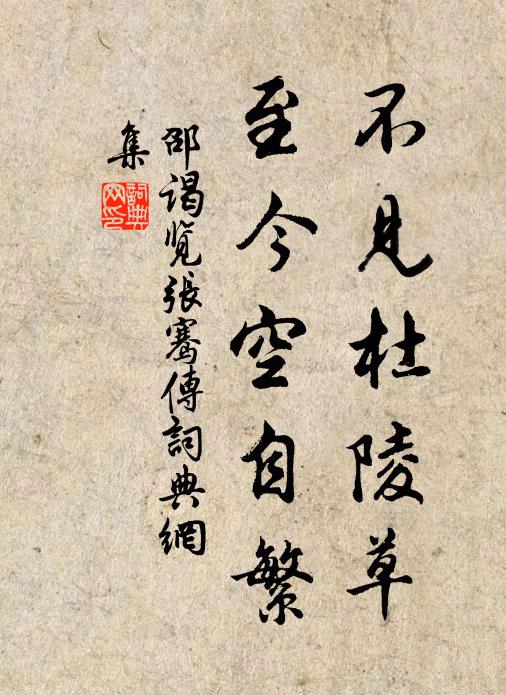 不見杜陵草
至今空自繁
邵謁覽張騫傳詞典網
集
詞典网印